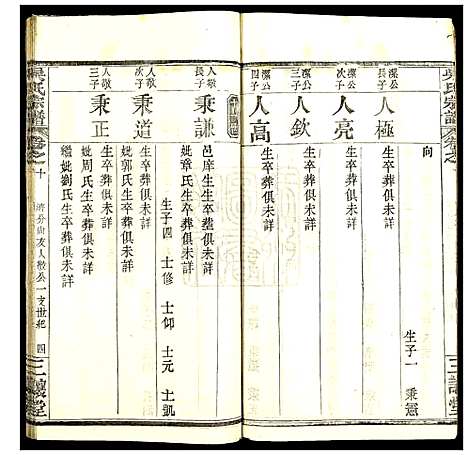 吳氏宗譜
卷之
三讓堂
向
生子一 秉憲
潔公長子 人極
潔公次子 人亮
生卒葬俱未詳
潔公三子 人欽
生卒葬俱未詳
潔公四子 人高
生卒葬俱未詳
人敬長子 秉謙
邑庠生生卒塟俱未詳
妣章氏生卒葬俱未詳
生子四 士修 士仰 士元 士凱
人敬次子 秉道
生卒葬俱未詳
妣郭氏生卒葬俱未詳
人敬三子 秉正
生卒葬俱未詳
妣周氏生卒葬俱未詳
繼妣劉氏生卒葬俱未詳
吳氏宗譜
卷之十
友人敬公一支世紀
四
三讓堂